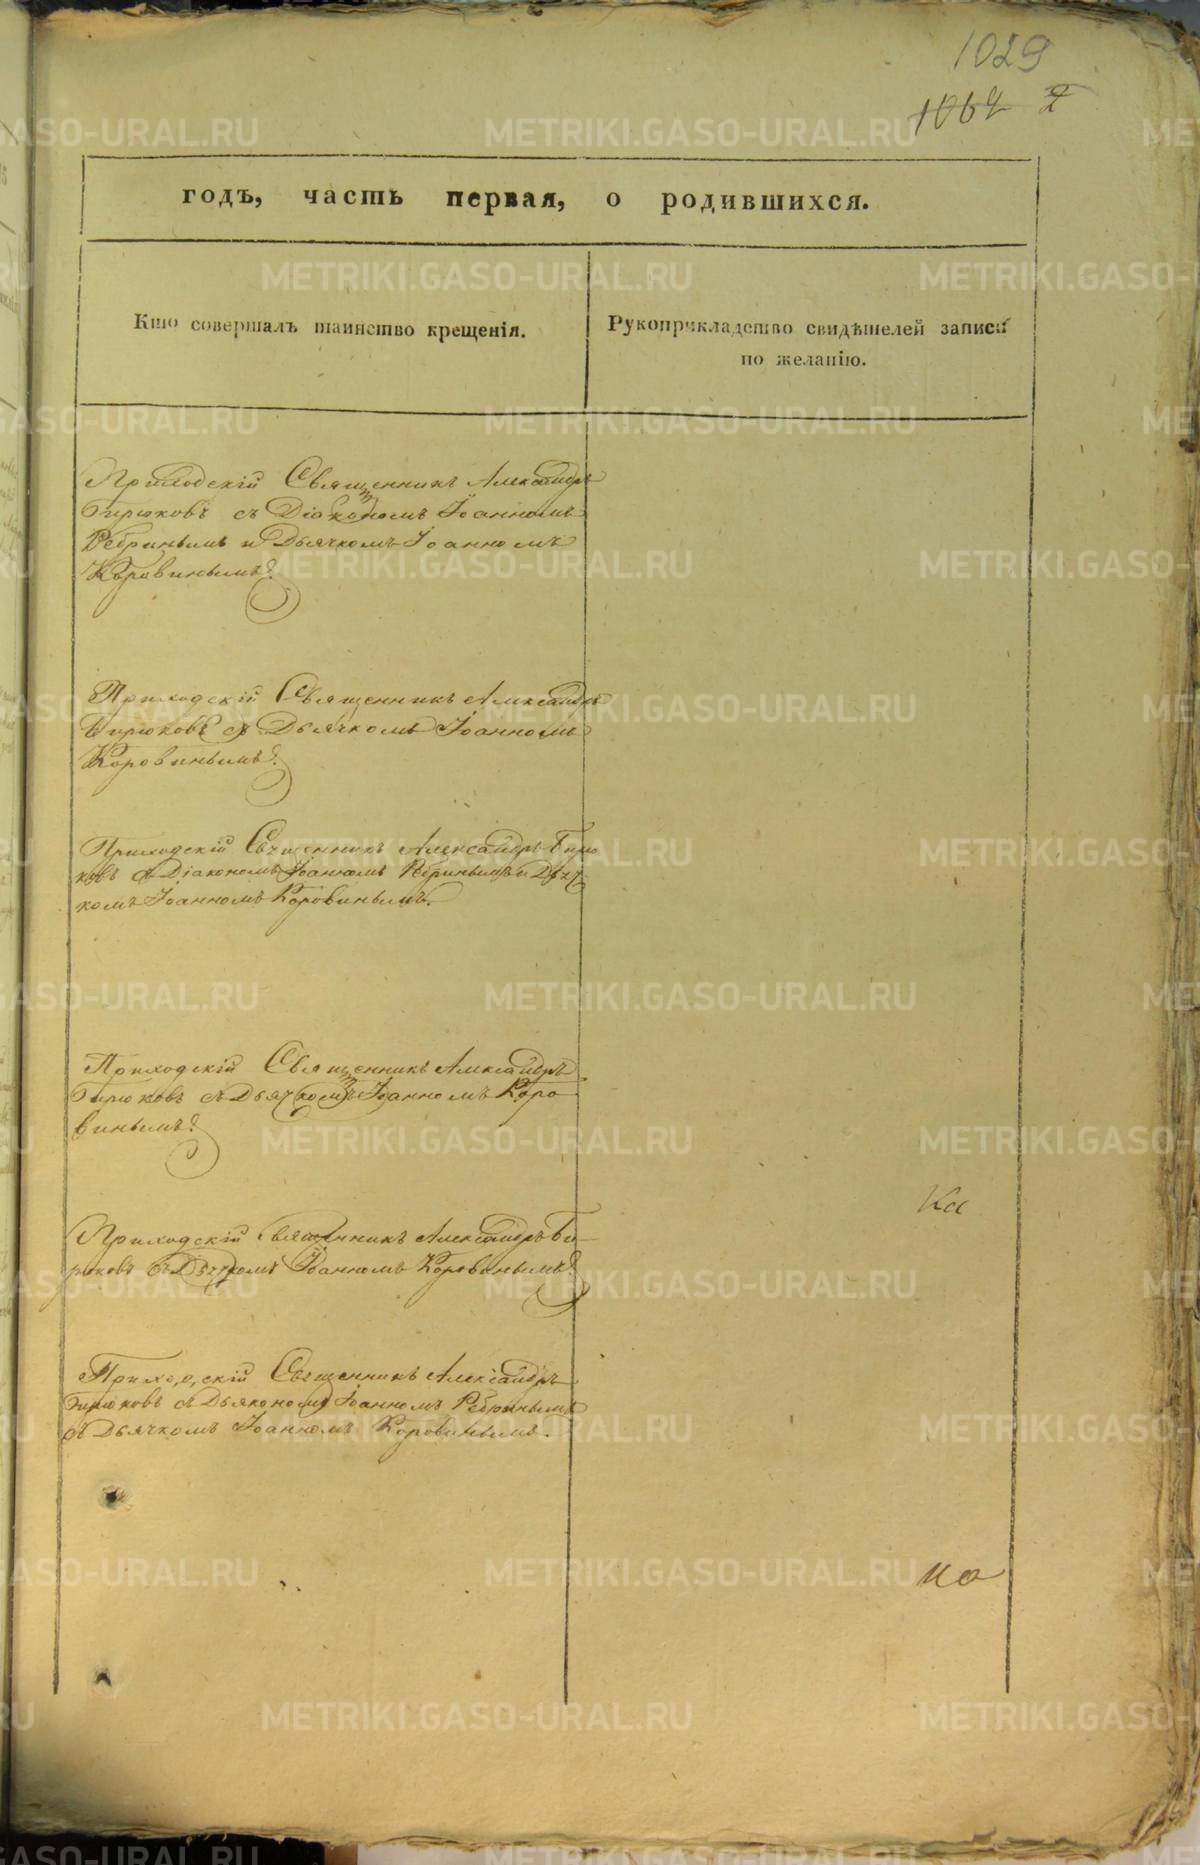 1029
1062 2
годъ, часть первая, о родившихся.
Кто совершалъ таинство крещенія.
Рукоприкладство свидѣтелей записи
по желанію.
Приходскій Священникъ Александръ
Бирюковъ съ Діакономъ Іоанномъ
Ребринымъ и Дьячкомъ Іоанномъ
Коровинымъ.
Приходскій Священникъ Александръ
Бирюковъ съ Дьячкомъ Іоанномъ
Коровинымъ.
Приходскій Священникъ Александръ Бирю
ковъ съ Діакономъ Іоанномъ Ребринымъ и Дьяч
комъ Іоанномъ Коровинымъ.
Приходскій Священникъ Александръ
Бирюковъ съ Дьячкомъ Іоанномъ Коро
винымъ.
Ка
Приходскій Священникъ Александръ Би-
рюковъ съ Дьячкомъ Іоанномъ Коровинымъ.
Приходскій Священникъ Александръ
Бирюковъ съ Дьякономъ Іоанномъ Ребринымъ
съ Дьячкомъ Іоанномъ Коровинымъ.
но
METRIKI.GASO-URAL.RU